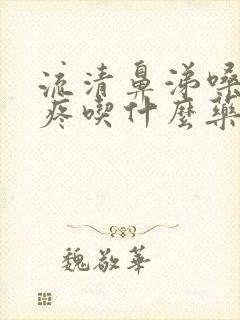 流清鼻涕嗓
疼喫什麼藥
魏敬華